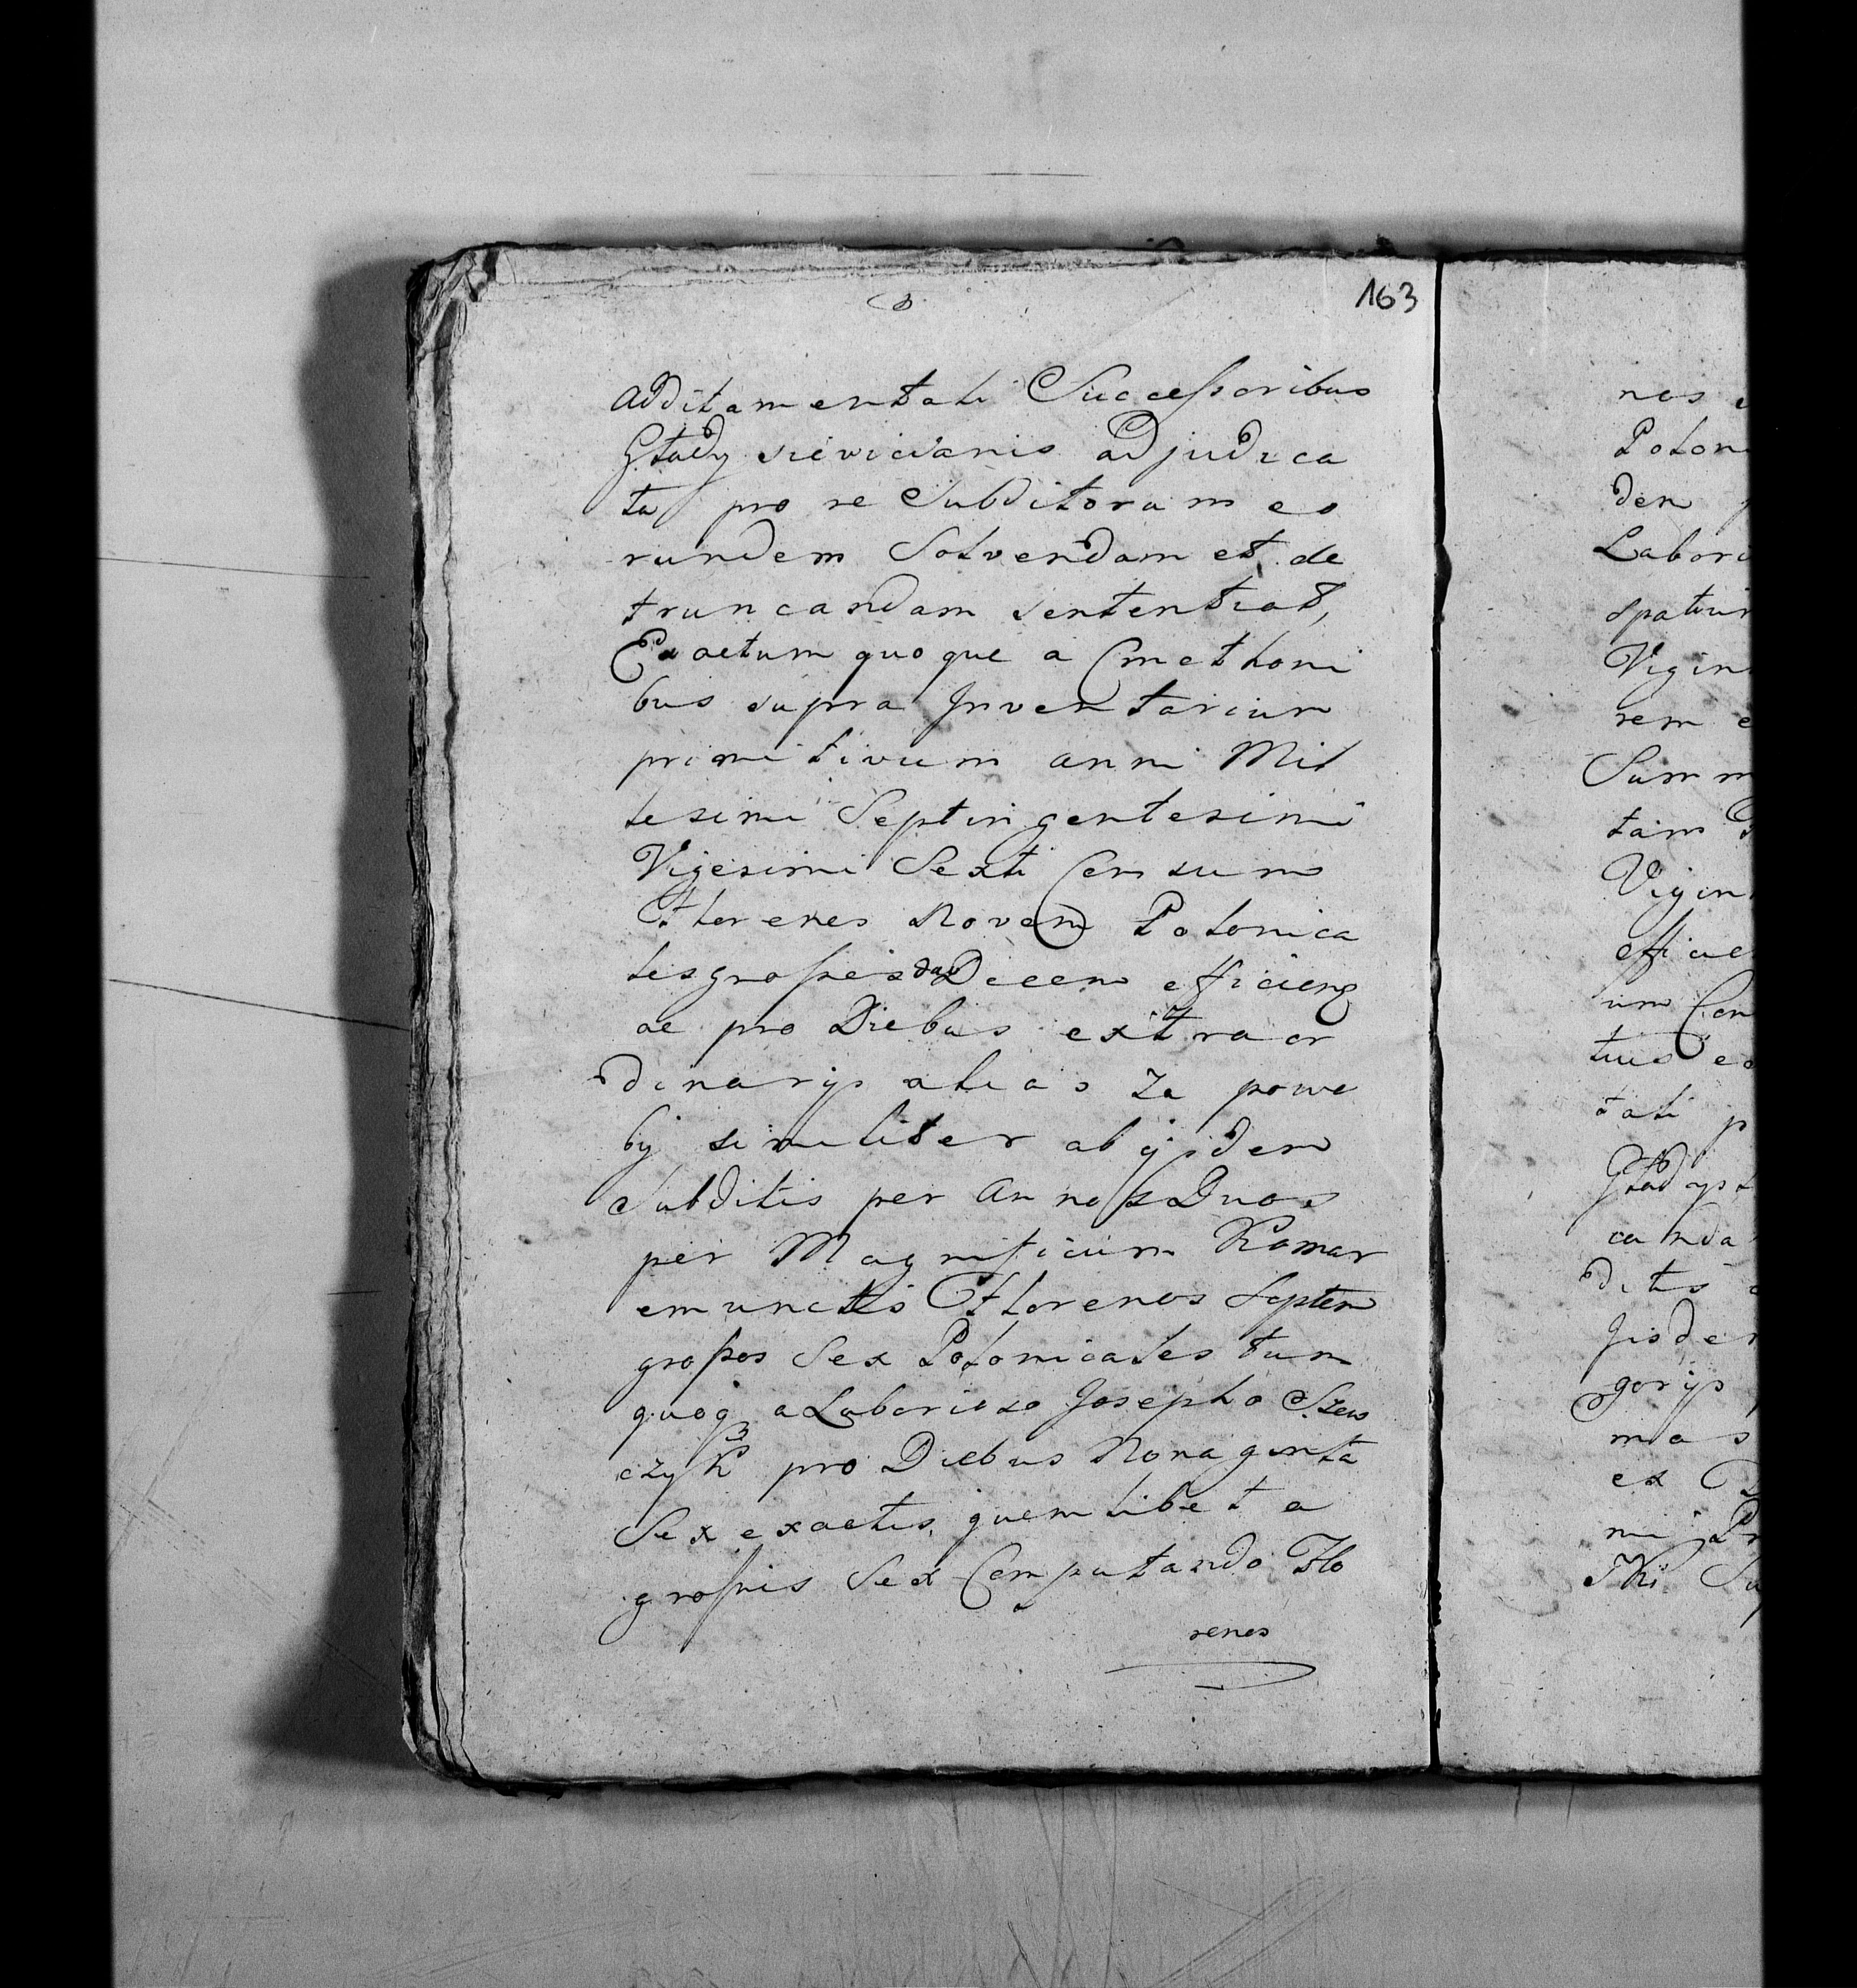 163
additamentali Successoribus
Gładysievicianis adjudica
ta pro re Subditorum eo
rundem Solvendam et de
truncandam sententiat,
Exactum quoque a Cmethoni
bus supra Inventarium
primitivum anni Mil
lesimi Septingentesimi
Vigesimi Sexti Censum
Florenos Novem Polonica
les grossis Decem efficieng
ae pro Diebus extraor
dinarys alias za powa
by similiter ab ijsdem
Subditis per Annos Duos
per Magnificum Komar
emunctis Florenos Septem
grossos Sex Polonicales tum
quoq a Laborioso Josepho Szew
czyk pro Diebus Nonaginta
Sex exactis, quemlibet a
grossis Sex Computando Flo
renos
nos
Polon
den
Labori
spatium
Vigin
rem
Summ
tam
Vigin
efficie
um Con
tus
tali p
Gładys
canda
ditis
Jisdem
gorys
mas
ex
mi Pr
ski Su